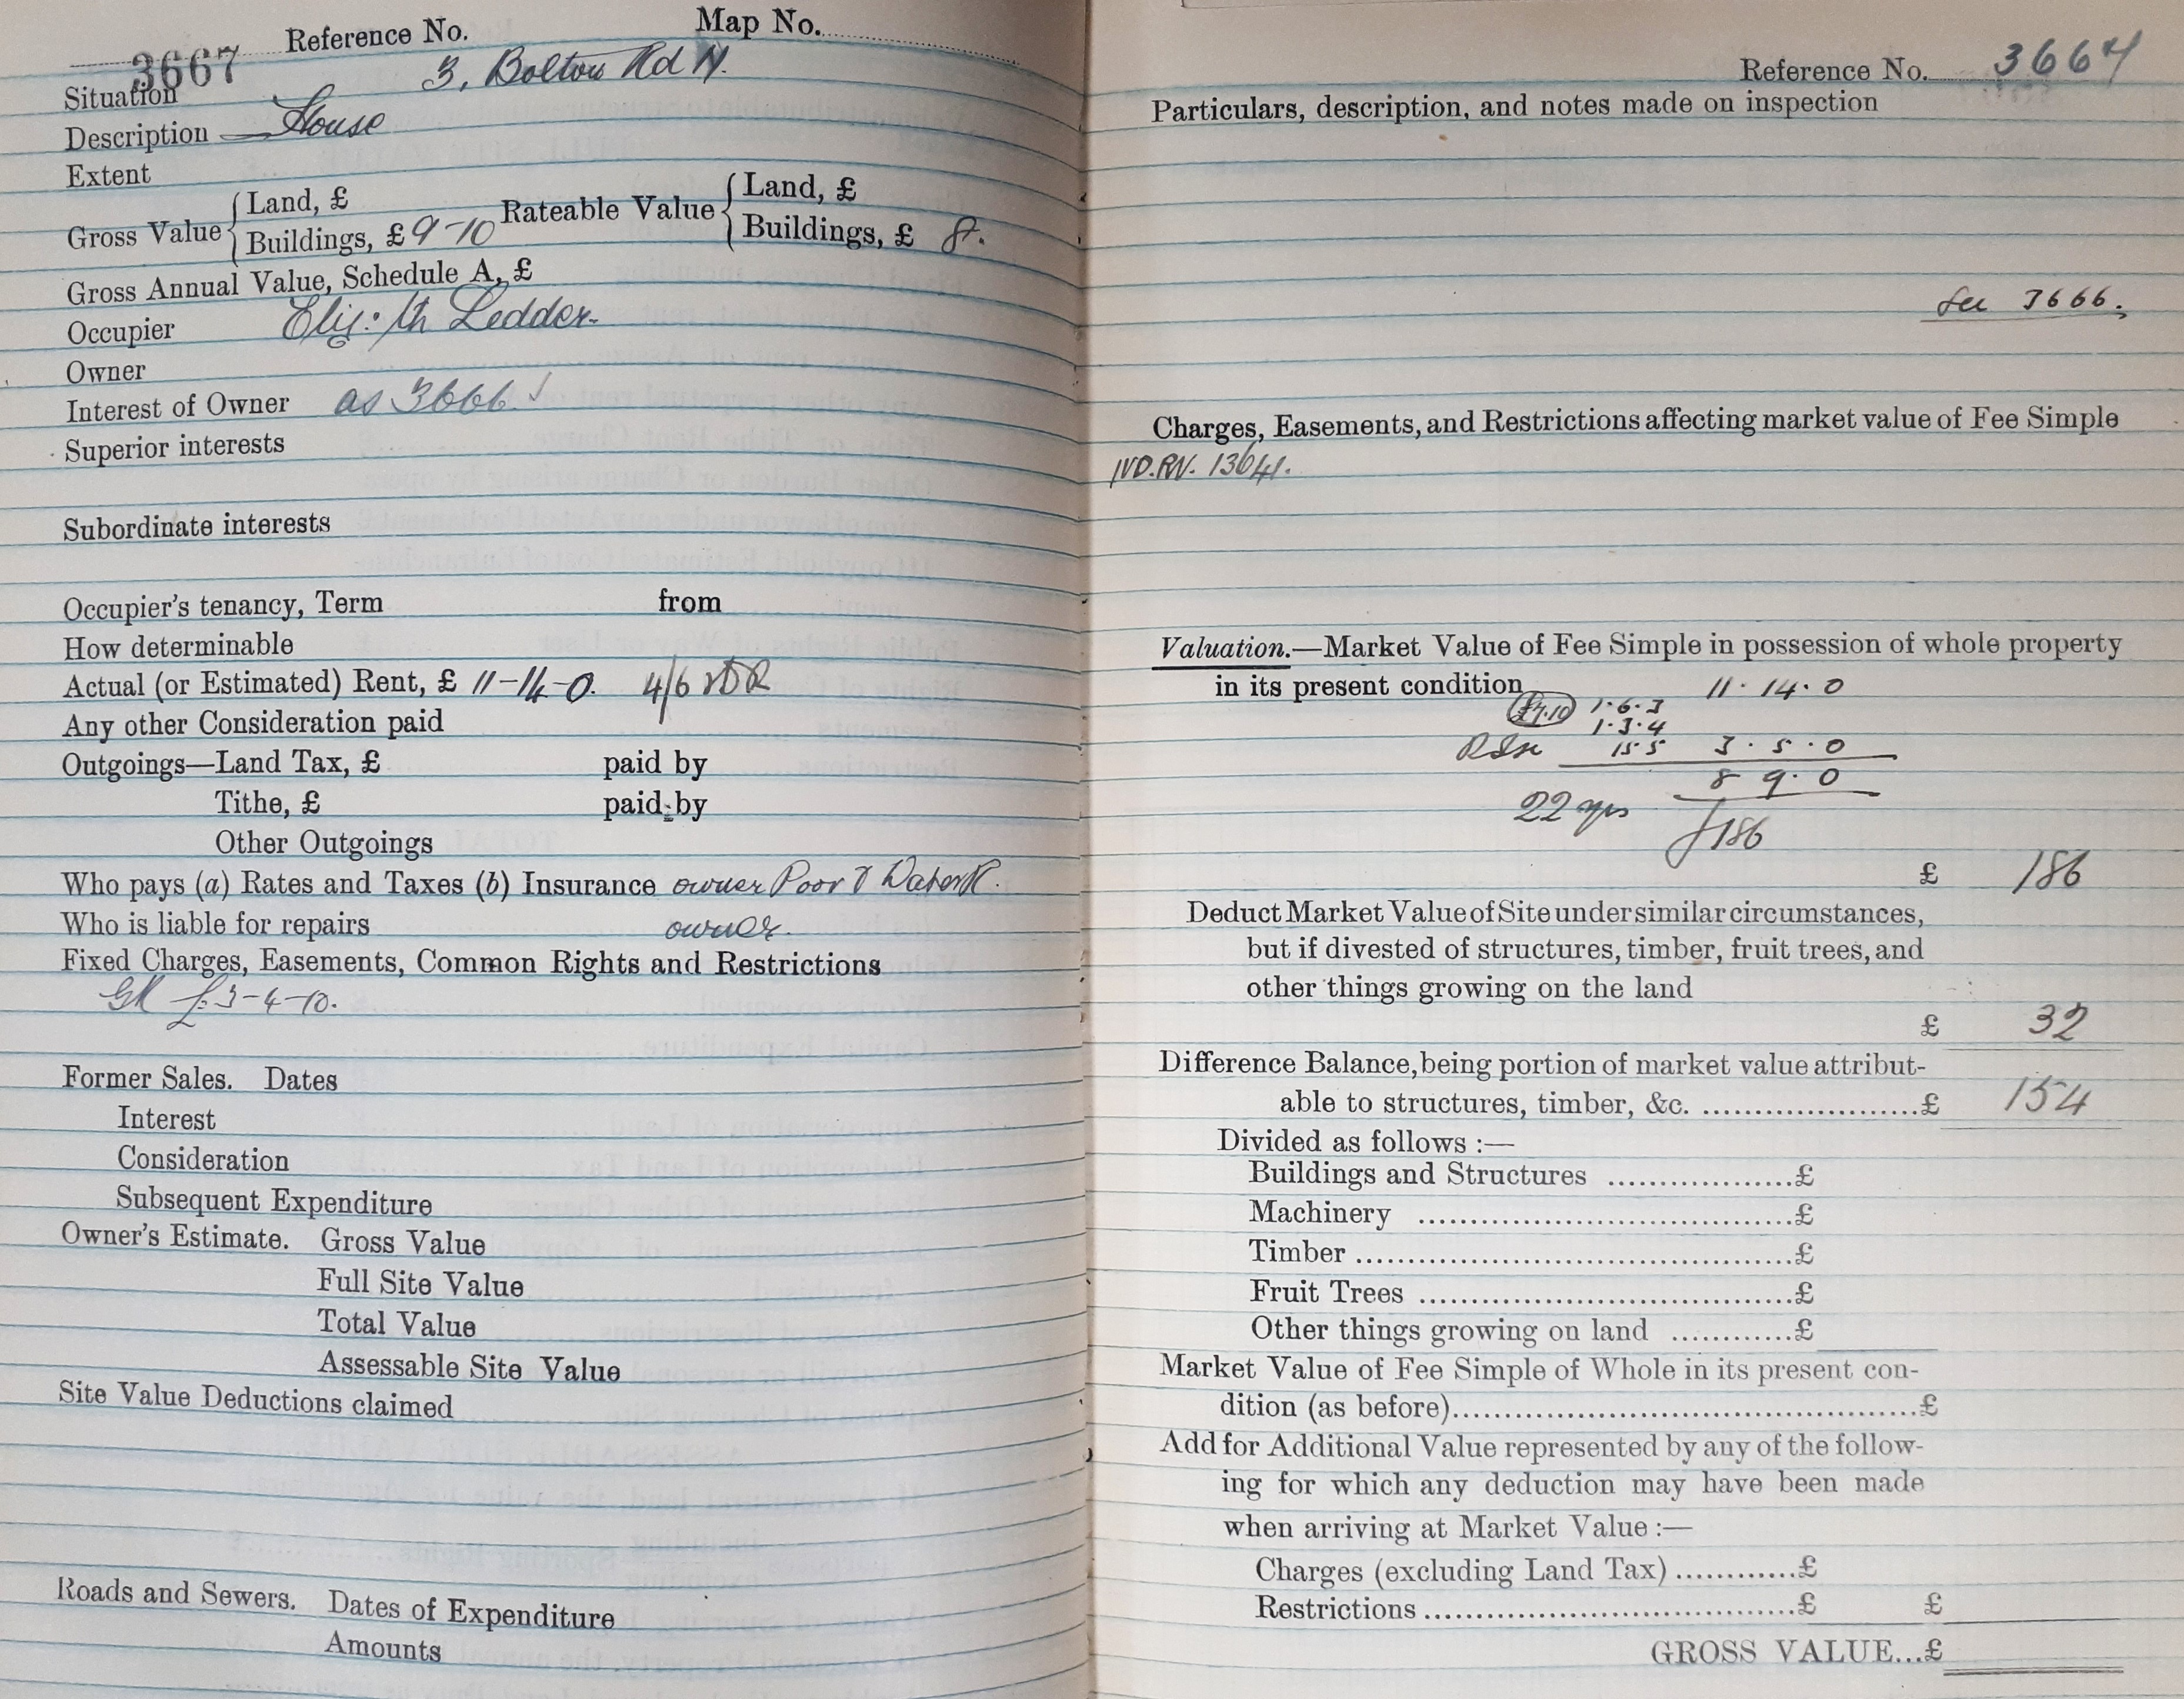 Reference No. Map No.
3667
Situation 3, Bolton Rd N.
Description House
Extent
Gross Value { Land, £ Rateable Value { Land, £
Buildings, £ 9-10 Buildings, £ 8.
Gross Annual Value, Schedule A, £
Occupier Eliz:th Ledder
Owner
Interest of Owner as 3666 ✓
Superior interests
Subordinate interests
Occupier's tenancy, Term from
How determinable
Actual (or Estimated) Rent, £ 11-14-0. 4/6
Any other Consideration paid
Outgoings—Land Tax, £ paid by
Tithe, £ paid by
Other Outgoings
Who pays (a) Rates and Taxes (b) Insurance owner Poor & Water R.
Who is liable for repairs owner.
Fixed Charges, Easements, Common Rights and Restrictions
GR £3-4-10.
Former Sales. Dates
Interest
Consideration
Subsequent Expenditure
Owner's Estimate. Gross Value
Full Site Value
Total Value
Assessable Site Value
Site Value Deductions claimed
Roads and Sewers. Dates of Expenditure
Amounts
Reference No. 3667
Particulars, description, and notes made on inspection
See 3666.
Charges, Easements, and Restrictions affecting market value of Fee Simple
IVD.RV. 13641.
Valuation.—Market Value of Fee Simple in possession of whole property
in its present condition 11. 14. 0
£7.10 1.6.3
1.3.4
15.5 3. 5. 0
8 9. 0
22 yrs £186
£ 186
Deduct Market Value of Site under similar circumstances,
but if divested of structures, timber, fruit trees, and
other things growing on the land
£ 32
Difference Balance, being portion of market value attribut-
able to structures, timber, &c. ....................£ 154
Divided as follows :—
Buildings and Structures ..................£
Machinery ....................................£
Timber ..........................................£
Fruit Trees ....................................£
Other things growing on land ............£
Market Value of Fee Simple of Whole in its present con-
dition (as before)..............................................£
Add for Additional Value represented by any of the follow-
ing for which any deduction may have been made
when arriving at Market Value :—
Charges (excluding Land Tax) ............£
Restrictions ....................................£ £
GROSS VALUE...£